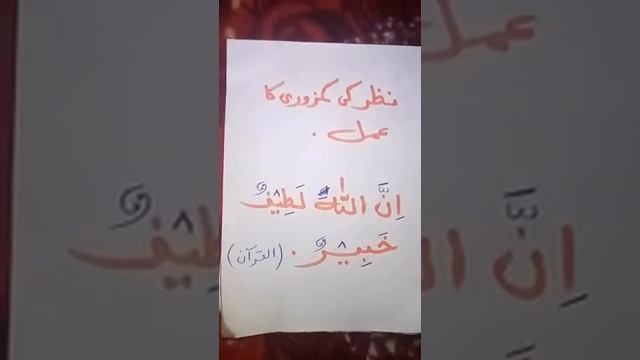 نظر کی کمزوری کا
عمل .
اِنَّ اللّٰهَ لَطِیْفٌ
خَبِیْرٌ . (القرآن)